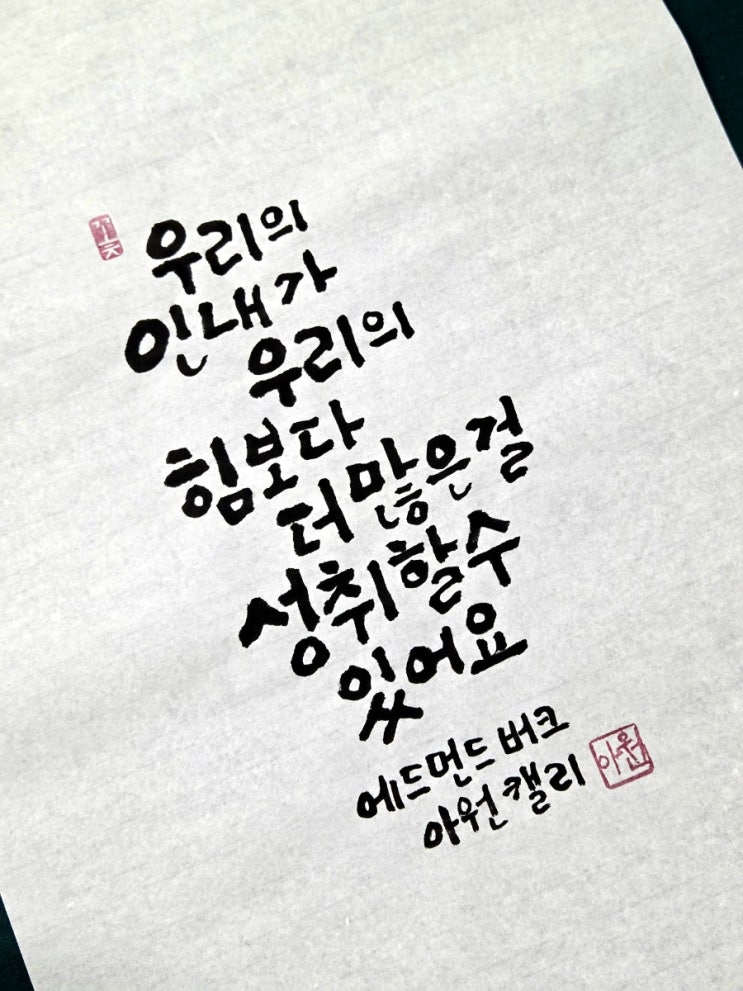 우리의
인내가
우리의
힘보다
더 많은걸
성취할수
있어요
에드먼드 버크
아원 캘리
아원